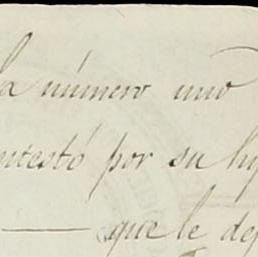 la número uno
ntestó por su hij
que le de